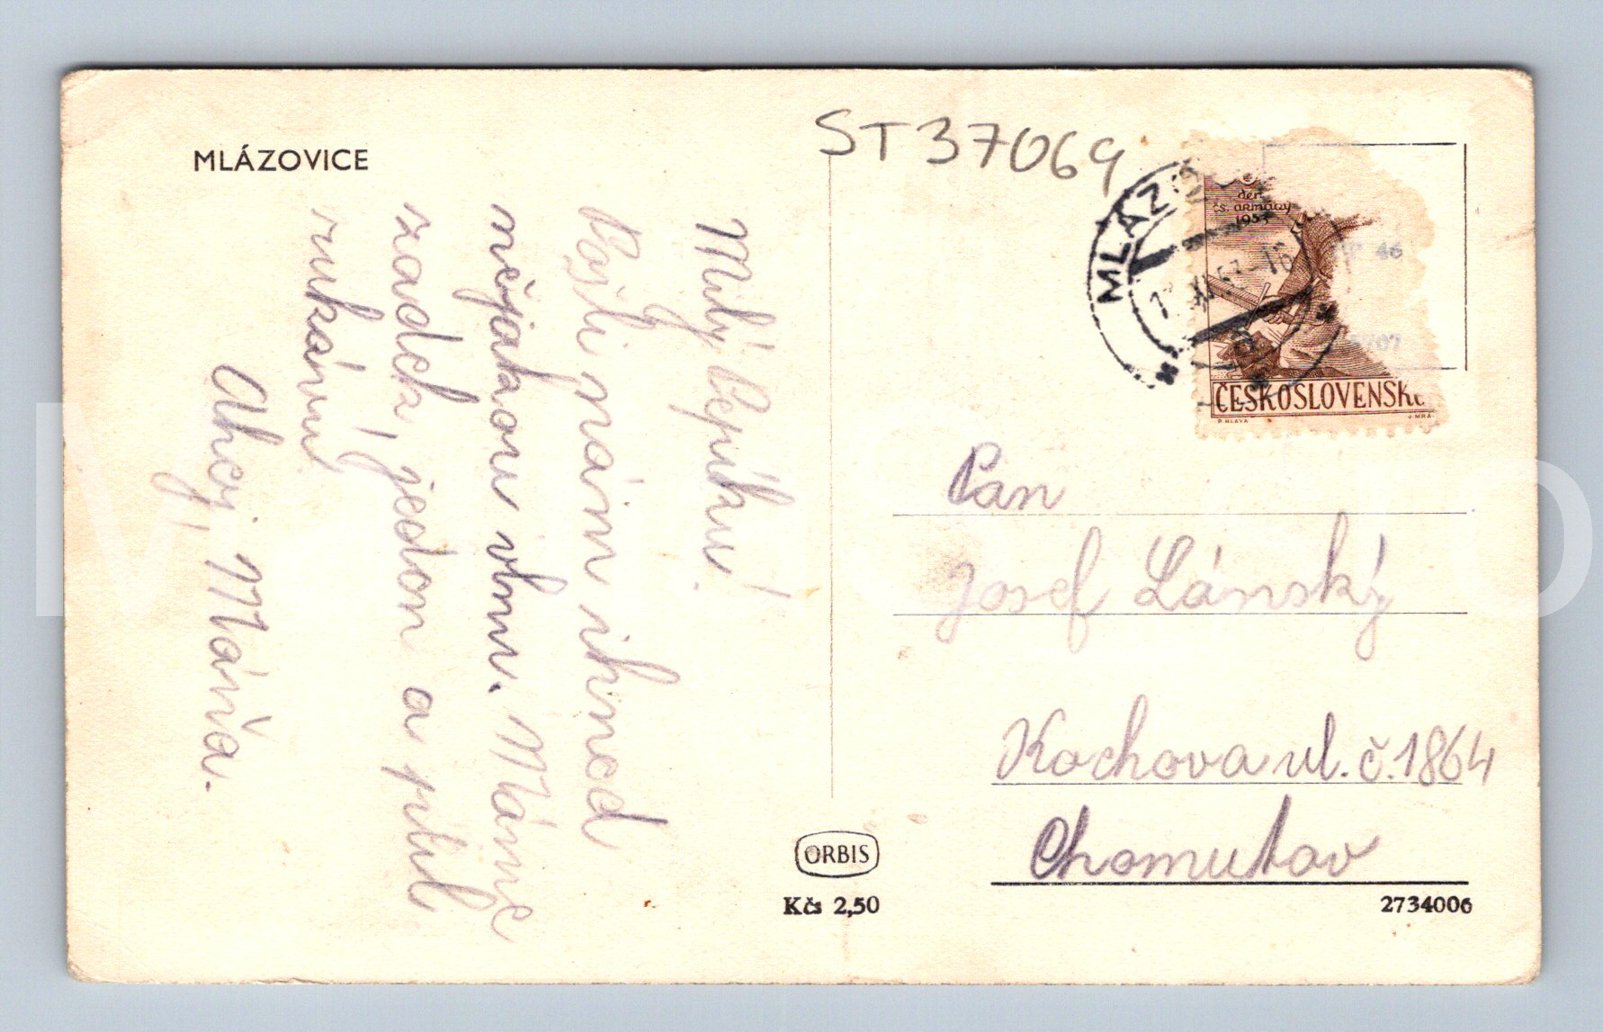 MLÁZOVICE
ST37069
Milý Pepíku!
Pošli nám ihned
nějakou vlnu. Máme
zadek, jeden a půl
rukávu
Ahoj, Máňa.
MLÁZO
den
čs. armády
1953
ČESKOSLOVENSK
P. HLAVÁ
J. MRÁ
46
Pan
Josef Lánský
Kochova ul. č. 1864
Chomutov
ORBIS
Kčs 2,50
2734006